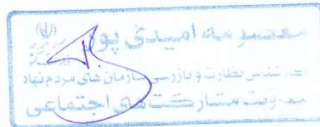 معصومه امیدی پور
کارشناس نظارت و بازرسی سازمان های مردم نهاد
معاونت مشارکت های اجتماعی